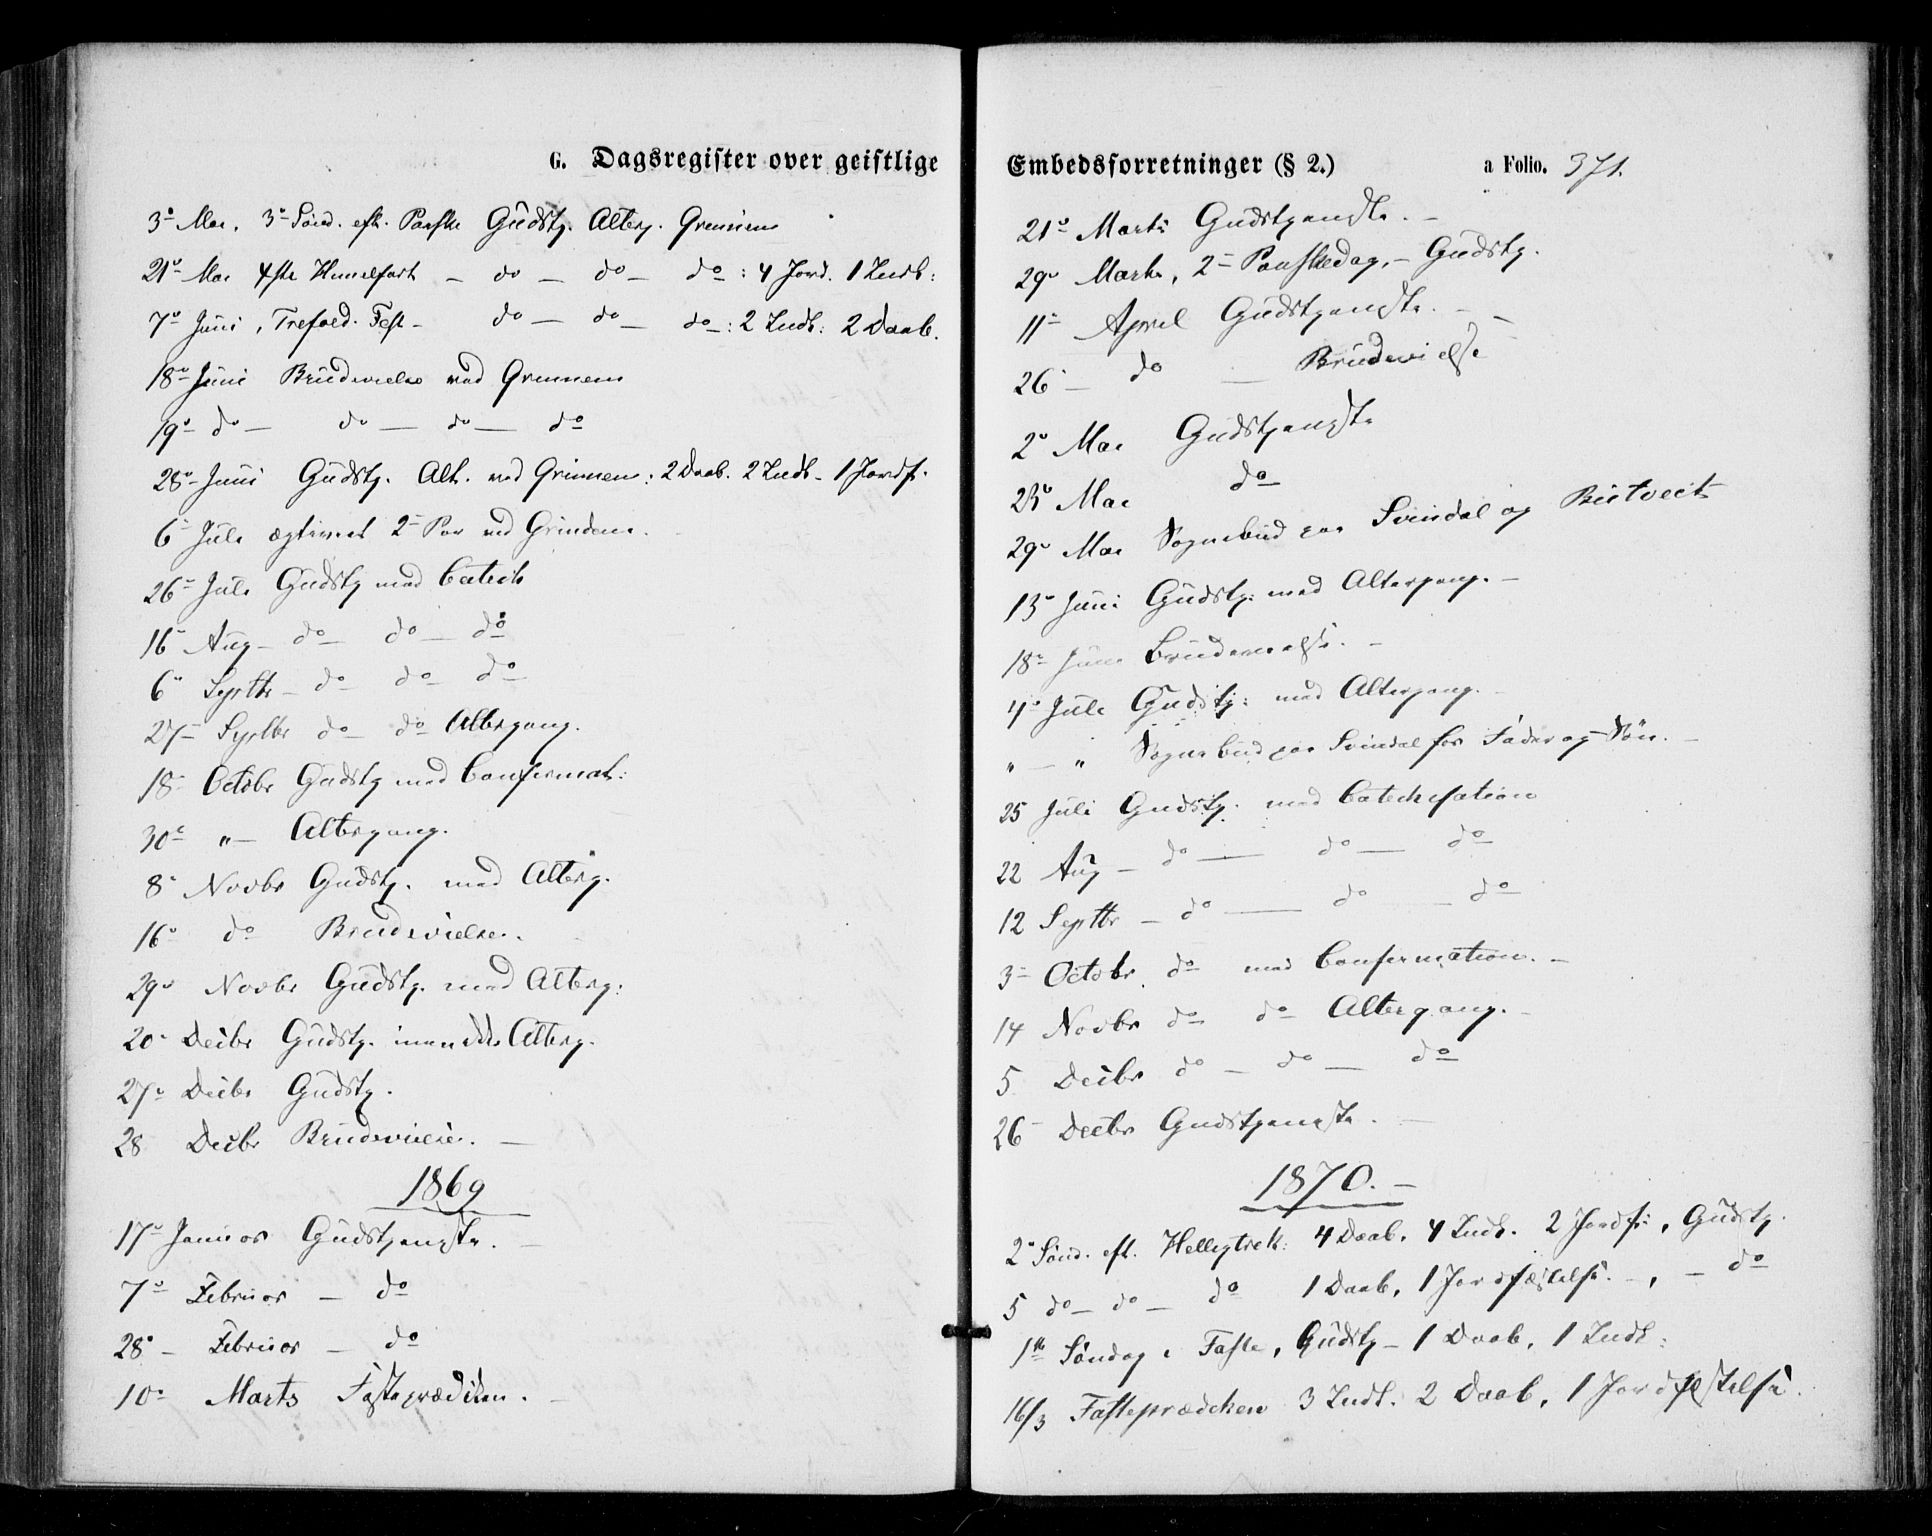 G. Dagsregister over geistlige
3o Mai, 3o Sönd. eft. Paaske Gudstj. Alterg. Grennen
21o Mai 4ste Himelfart – do – do – do : 4 Jord. 1 Indl:
7o Juni, Trefold. Fest – do – do – do : 2 Indl: 2 Daab.
18o Juni Brudevielse ved Grennen
19o do – do – do – do
28o Juni Gudstj. Alt. ved Grinnen: 2 Daab. 2 Indl – 1 Jordf.
6o Juli ægteviet 2 Par ved Grinden.
26o Juli Gudstj med Catech
16o Aug – do – do – do
6o Septbr – do – do – do
27 – Septbr do – do Altergang.
18 Octobr Gudstj med Confirmat:
30o " – Altergang.
8o Novbr Gudstj. med Alterg.
16o do Brudevielse.
29o Novbr Gudstj. med Alterg:
20o Decbr Gudstj. Alterg.
27o Decbr Gudstj.
28 Decbr Brudevielse. –
1869
17o Januar Gudstjeneste. –
7o Februar – do
28o – Februar – do
10o Marts Fasteprædiken. –
Embedsforretninger (§ 2.) a Folio. 371.
21o Marts Gudstjeneste. –
29o Marts, 2 – Paaskedag, – Gudstj.
11o April Gudstjeneste. –
26 – do – Brudevielse
2o Mai Gudstjeneste
23o Mai do
29o Mai Sognebud paa Svindal og
13o Juni Gudstj: med Altergang. –
18o Juni Brudevielse. –
4o Juli Gudstj: med Altergang. –
" – " Sognebud paa Svindal for Fader og Sön. –
25 Juli Gudstj. med Catechisation
22 Aug – do – do – do
12 Septbr – do – do – do
3 – Octobr. do med Confirmation. –
14 Novbr do – do Altergang. –
5 Decbr do – do – do
26 – Decbr Gudstjeneste. –
1870. –
2o Sönd. eft. Helligtrek: 4 Daab. 4 Indl. 2 Jordf:, Gudstj.
5 do – do – do 1 Daab, 1 Jordfæstelse. –, – do
1ste Söndag i Faste, Gudstj – 1 Daab, 1 Indl:
16/3 Fasteprædiken 3 Indl. 2 Daab, 1 Jordfæstelse.